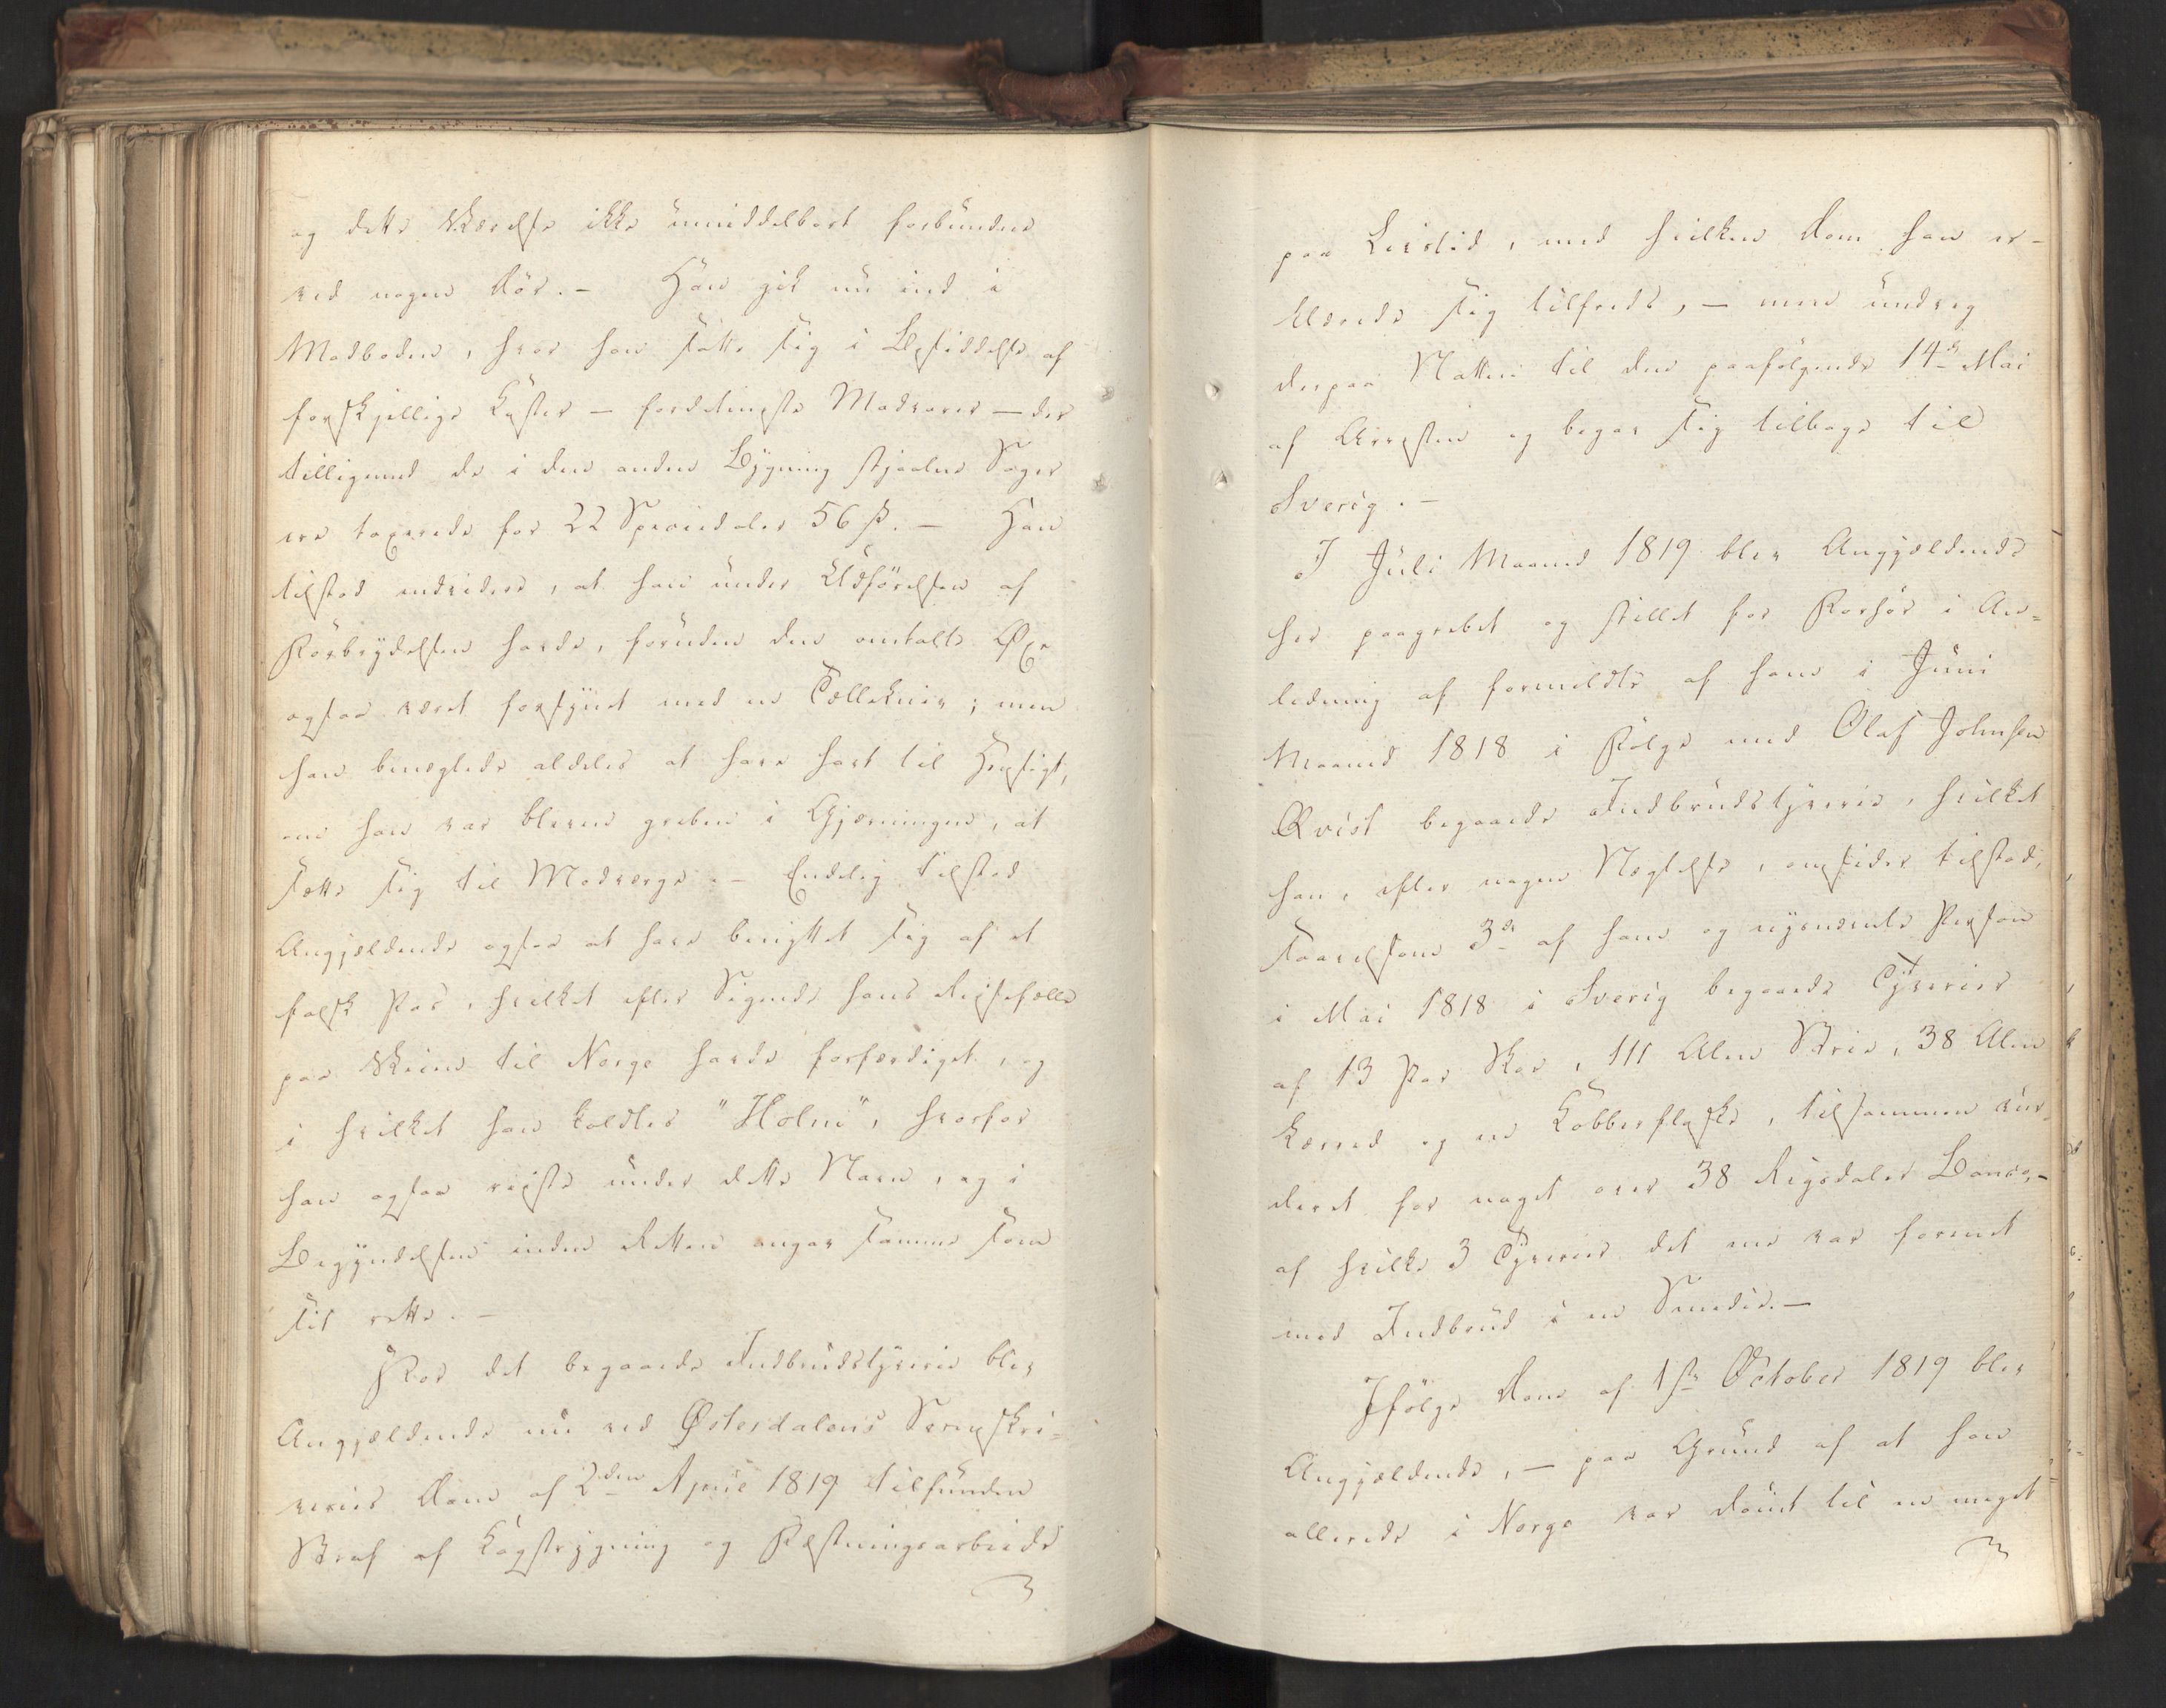 og dette Værelse ikke umiddelbart forbunden
ved nogen Dör. – Han gik nu ind i
Madboden, hvor han satte sig i Besiddelse af
forskjellige Kister – fordetmeste Madvarer – der
tilligemed de i den anden Bygning stjaalne Sager
ere taxerede for 22 Speciedaler 56 ß. – Han
tilstod endvidere, at han under Udförelsen af
Forbrydelsen havde, foruden den omtalte Öxe
ogsaa været forsynet med en Tællekniv; men
han benegtede aldeles at have havt til Hensigt,
om han var bleven greben i Gjerningen, at
sætte sig til Modværge. – Endelig tilstod
Angjældende ogsaa at have benyttet sig af et
falsk Pas, hvilket efter Sigende hans Reisefælle
paa Veien til Norge havde forfærdiget, og
i hvilket han kaldtes "Holm", hvorfor
han ogsaa reiste under dette Navn, og i
Begyndelsen inden Retten angav samme som
sit rette. –
For det begaaede Indbrudstyverie blev
Angjældende nu ved Østerdalens Sorenskri-
veries Dom af 2den April 1819 tilfunden
Straf af Kagstrygning og Fæstningsarbeide
paa Livstid, med hvilken Dom han er-
klærede sig tilfreds, – men undveg
derpaa Natten til den paafölgende 14de Mai
af Arresten og begav sig tilbage til
Sverig. –
I Juli Maaned 1819 blev Angjældende
her paagrebet og stillet for Forhör i An-
ledning af formeldte af ham i Juni
Maaned 1818 i Fölge med Olaf Johnsen
Qvist begaaede Indbrudstyverie, hvilket
han, efter nogen Negtelse, omsider tilstod,
saavelsom 3de af ham og nysnævnte Person
i Mai 1818 i Sverig begaaede Tyverier
af 13 Par Skoe, 111 Alen Strie, 38 Alen
Lærred og en Kobberflaske, tilsammen vur-
deret for noget over 38 Rigsdaler Banco,-
af hvilke 3 Tyverier det ene var forenet
med Indbrud i en Smedie. –
Ifölge Dom af 1ste October 1819 blev
Angjældende, – paa Grund af at han
allerede i Norge var dömt til en meget